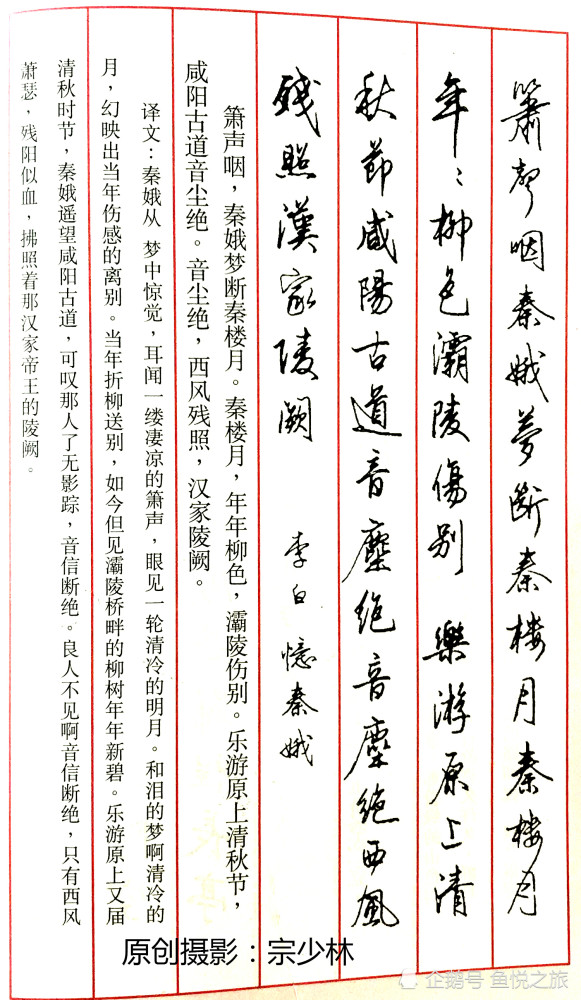 簫聲咽秦娥夢斷秦樓月秦樓月
年〻柳色灞陵傷别 樂游原上清
秋節咸陽古道音塵绝音塵绝西風
殘照漢家陵闕 李白憶秦娥
箫声咽，秦娥梦断秦楼月。秦楼月，年年柳色，灞陵伤别。乐游原上清秋节，
咸阳古道音尘绝。音尘绝，西风残照，汉家陵阙。
译文：秦娥从 梦中惊觉，耳闻一缕凄凉的箫声，眼见一轮清冷的明月。和泪的梦啊清冷的
月，幻映出当年伤感的离别。当年折柳送别，如今但见灞陵桥畔的柳树年年新碧。乐游原上又届
清秋时节，秦娥遥望咸阳古道，可叹那人了无影踪，音信断绝。良人不见啊音信断绝，只有西风
萧瑟，残阳似血，拂照着那汉家帝王的陵阙。
原创摄影：宗少林
企鹅号 鱼悦之旅